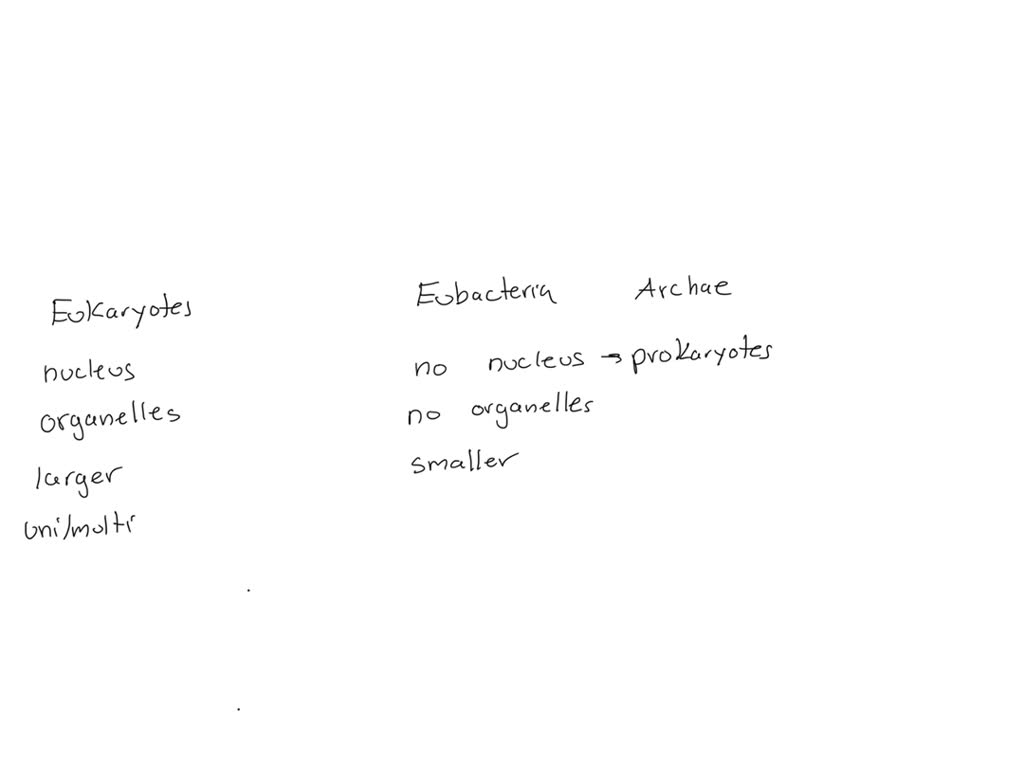 Eukaryotes Eubacteria Archae
nucleus no nucleus → prokaryotes
organelles no organelles
larger smaller
uni/multi